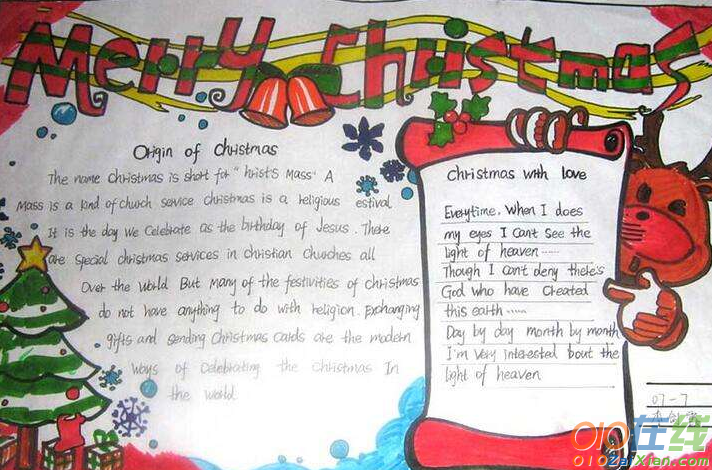 Merry Christmas
Origin of Christmas
The name Christmas is short for "hrist's Mass' A
Mass is a kind of church service christmas is a religious estival
It is the day we Celebrate as the birthday of Jesus. There
are special christmas services in christian churches all
Over the World But many of the festivities of christmas
do not have anything to do with religion. Exchanging
gifts and sending Christmas cards are the modern
Ways of Celebrating the Christmas In
the world
Christmas with love
Everytime, When I does
my eyes I Can't See the
light of heaven ......
Though I can't deny there's
God who have Created
this earth ......
Day by day month by month
I'm very interested 'bout the
light of heaven
07-7
010在线
010ZaiXian.com